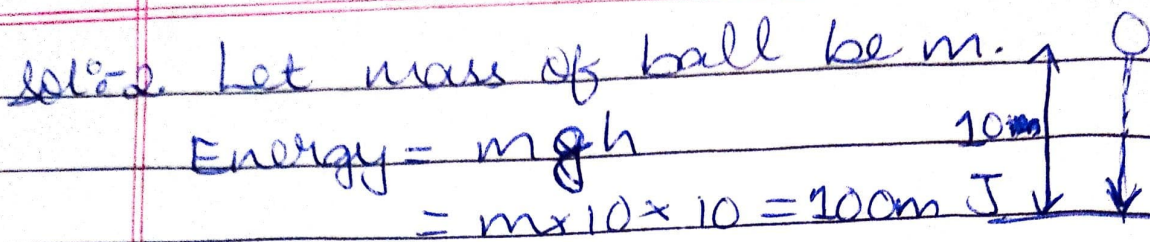 Sol:-2. Let mass of ball be m.
Energy = mgh
10m
= m×10×10 = 100m J